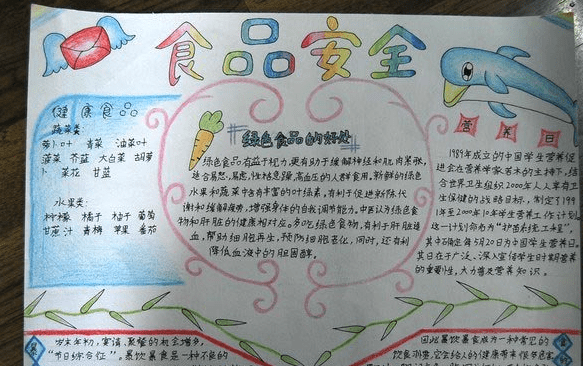 食品安全
健康食品
蔬菜类:
萝卜叶 青菜 油菜叶
菠菜 芥蓝 大白菜 胡萝
卜 菜花 甘蓝
水果类:
柠檬 橘子 柚子 葡萄
甘蔗汁 青梅 苹果 番茄
绿色食品的好处
绿色食品有益于视力,更有助于缓解神经和肌肉紧张,
适合易怒,易虑,性格急躁,高血压的人群食用,新鲜的绿色
水果和蔬菜中含有丰富的叶绿素,有利于促进新陈代
谢和缓解疲劳,增强身体的自我调节能力,中医认为绿色食
物和肝脏的健康相对应。多吃绿色食物,有利于肝脏造
血,帮助细胞再生,预防细胞老化,同时,还有利
降低血液中的胆固醇。
营养日
1989年成立的中国学生营养促
进会在营养学家
的主持下,结
合世界卫生组织2000年人人享有卫
生保健的战略目标,制定了199
1年至2000年10年学生营养工作计划
这一计划命名为“护苗系统工程”,
其中确定每5月20日为中国学生营养日。
其目在于广泛、深入宣传学生时期营养
的重要性,大力普及营养知识。
岁末年初,宴请、聚餐的机会增多,
“节日综合征”。暴饮暴食是一种不良的
因此暴饮暴食成为一种常见的
饮食